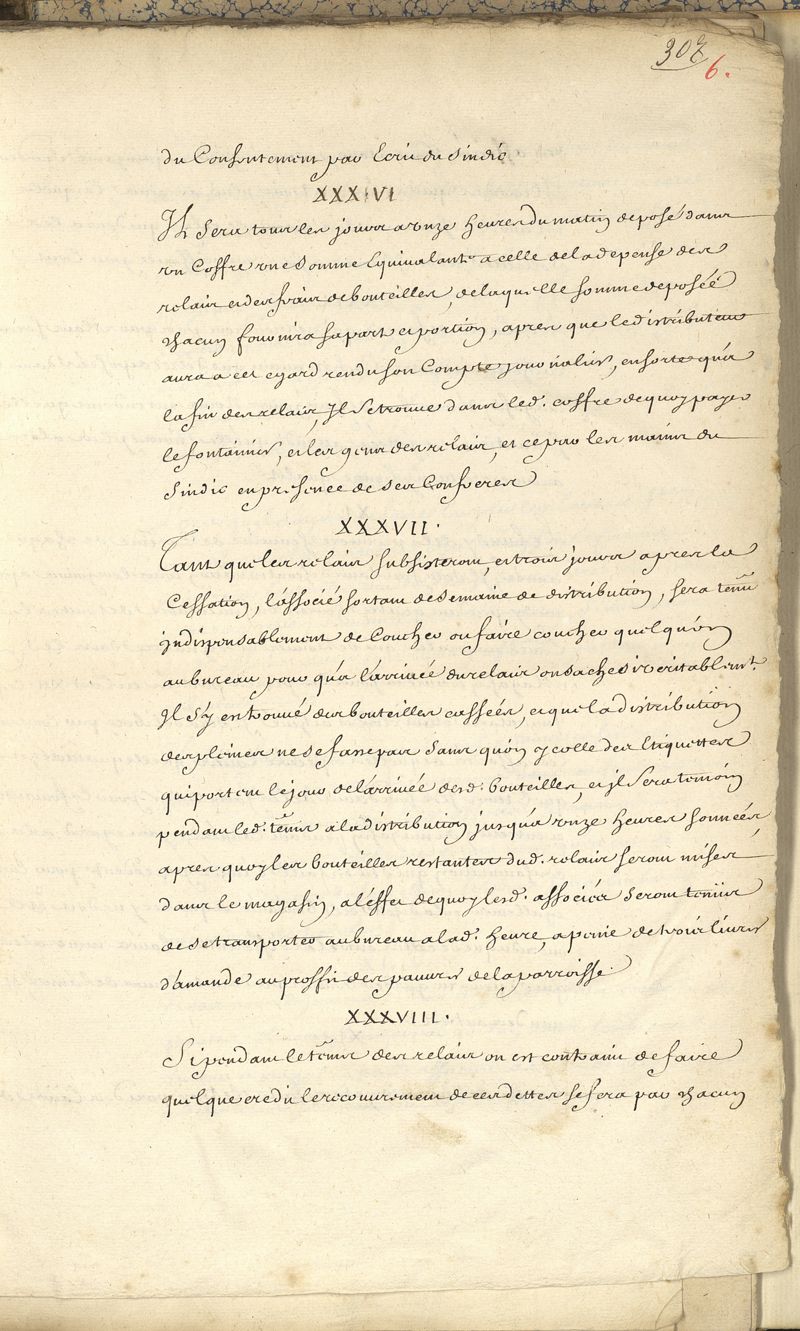 307
6.
du Consentement par Ecrit du Sindic
XXXVI
Il sera tous les jours a onze heures du matin deposé dans
un Coffre une somme Equivalante a celle de la depense des
relais et des frais de bouteilles, de laquelle somme deposée
chacun fournira sa part et portion, apres que le distributeur
aura a cet egard rendu son Compte journalier, en sorte qu'a
la fin des relais, Il se trouve dans led. coffre de quoy payer
le fontainier, et les gens des relais, et ce par les mains du
Sindic en presence de ses Confreres
XXXVII.
Tant que les relais subsisteront, et trois jours apres la
Cessation, l'associé sortant de semaine de distribution, sera tenu
indispensablement de Coucher ou faire coucher quelqu'un
au bureau pour qu'a l'arrivée du relais on sache si veritablemt.
Il s'y est trouvé des bouteilles cassées, et que la distribution
des pleines ne se fasse pas sans qu'on y colle des Etiquettes
qui portent le jour de l'arrivée desd. bouteilles, et il sera temoin
pendant led. tems a la distribution jusqu'a onze heures sonnées,
apres quoy les bouteilles restantes dud. relais seront mises
dans le magasin, a l'effet de quoy lesd. associés seront tenus
de se transporter au bureau a lad. heure, a peine de trois livres
d'amande au proffit des pauvres de la parroisse.
XXXVIII.
Si pendant le tems des relais on est contraint de faire
quelque credit le recouvrement de ces dettes se fera par chacun